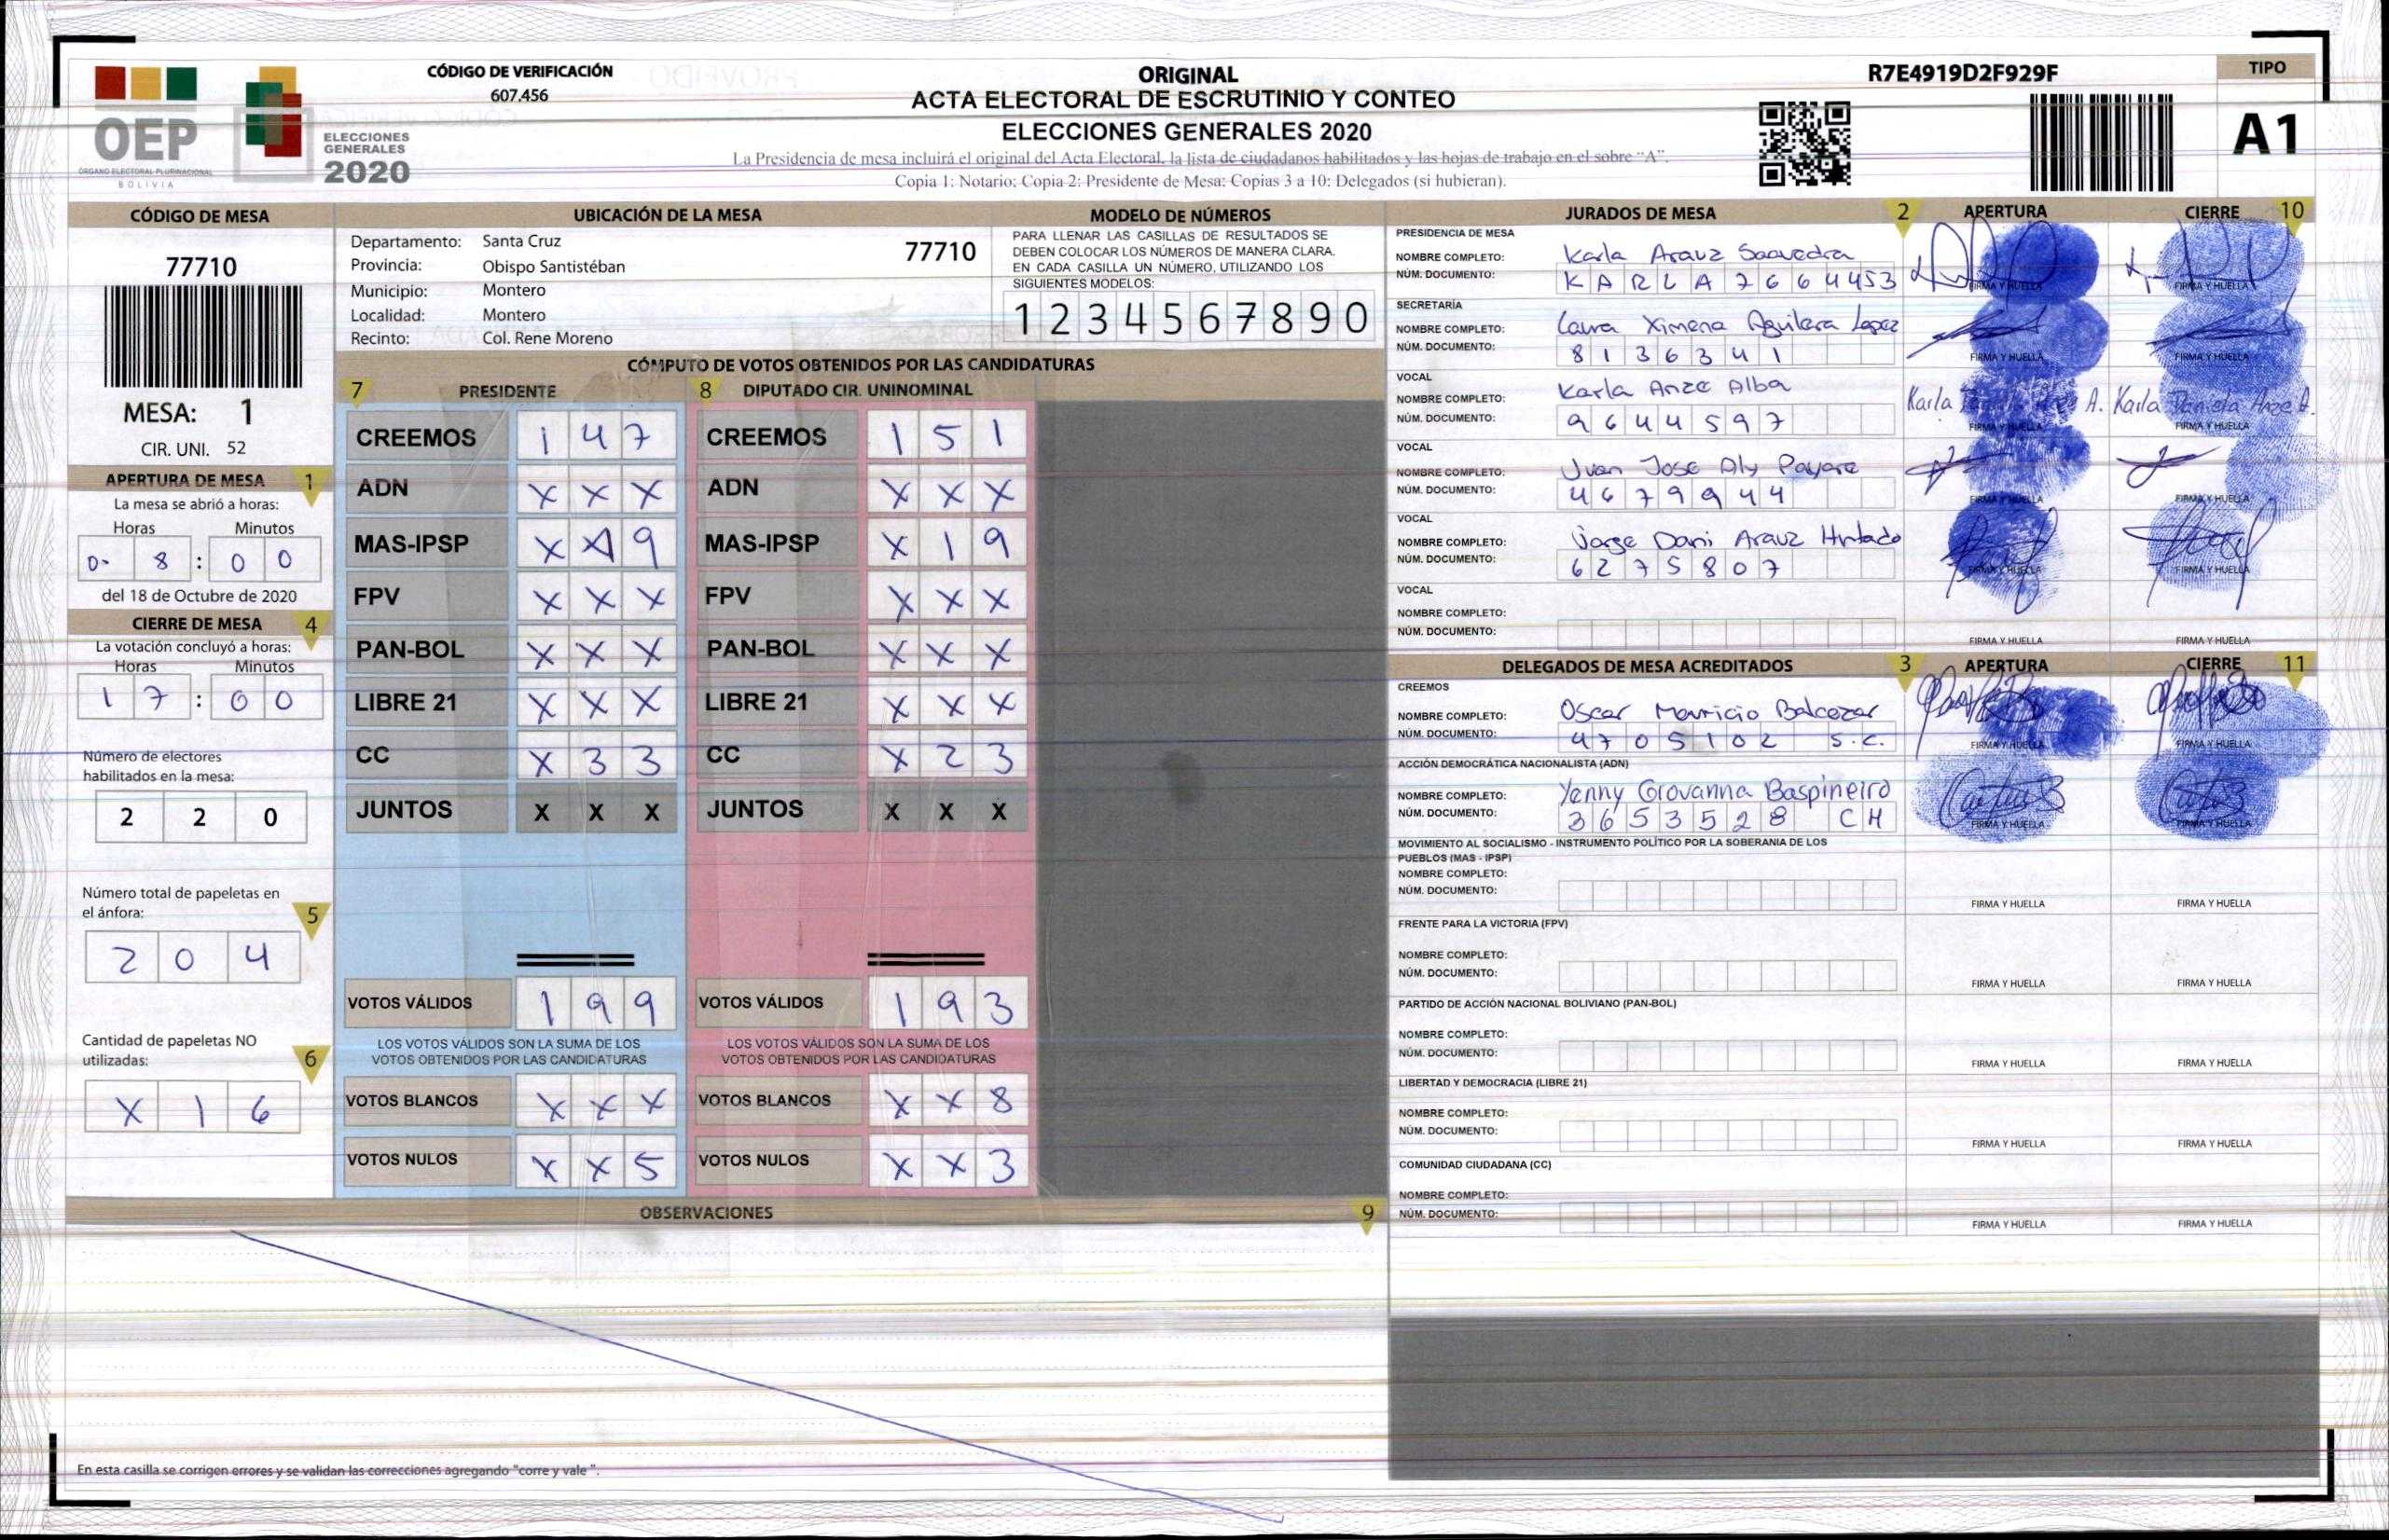 CÓDIGO DE VERIFICACIÓN
607.456
ORIGINAL
ACTA ELECTORAL DE ESCRUTINIO Y CONTEO
ELECCIONES GENERALES 2020
La Presidencia de mesa incluirá el original del Acta Electoral, la lista de ciudadanos habilitados y las hojas de trabajo en el sobre "A".
Copia 1: Notario; Copia 2: Presidente de Mesa; Copias 3 a 10: Delegados (si hubieran).
R7E4919D2F929F
TIPO
A1
OEP
ÓRGANO ELECTORAL PLURINACIONAL
BOLIVIA
ELECCIONES
GENERALES
2020
CÓDIGO DE MESA
77710
MESA: 1
CIR. UNI. 52
APERTURA DE MESA 1
La mesa se abrió a horas:
Horas Minutos
0 8 : 0 0
del 18 de Octubre de 2020
CIERRE DE MESA 4
La votación concluyó a horas:
Horas Minutos
1 7 : 0 0
Número de electores
habilitados en la mesa:
2 2 0
Número total de papeletas en
el ánfora: 5
2 0 4
Cantidad de papeletas NO
utilizadas: 6
X 1 6
UBICACIÓN DE LA MESA
Departamento: Santa Cruz 77710
Provincia: Obispo Santistéban
Municipio: Montero
Localidad: Montero
Recinto: Col. Rene Moreno
MODELO DE NÚMEROS
PARA LLENAR LAS CASILLAS DE RESULTADOS SE
DEBEN COLOCAR LOS NÚMEROS DE MANERA CLARA.
EN CADA CASILLA UN NÚMERO, UTILIZANDO LOS
SIGUIENTES MODELOS:
1 2 3 4 5 6 7 8 9 0
CÓMPUTO DE VOTOS OBTENIDOS POR LAS CANDIDATURAS
7 PRESIDENTE 8 DIPUTADO CIR. UNINOMINAL
CREEMOS 1 4 7 CREEMOS 1 5 1
ADN X X X ADN X X X
MAS-IPSP X 1 9 MAS-IPSP X 1 9
FPV X X X FPV X X X
PAN-BOL X X X PAN-BOL X X X
LIBRE 21 X X X LIBRE 21 X X X
CC X 3 3 CC X 2 3
JUNTOS X X X JUNTOS X X X
VOTOS VÁLIDOS 1 9 9 VOTOS VÁLIDOS 1 9 3
LOS VOTOS VÁLIDOS SON LA SUMA DE LOS LOS VOTOS VÁLIDOS SON LA SUMA DE LOS
VOTOS OBTENIDOS POR LAS CANDIDATURAS VOTOS OBTENIDOS POR LAS CANDIDATURAS
VOTOS BLANCOS X X X VOTOS BLANCOS X X 8
VOTOS NULOS X X 5 VOTOS NULOS X X 3
OBSERVACIONES 9
En esta casilla se corrigen errores y se validan las correcciones agregando "corre y vale".
JURADOS DE MESA 2 APERTURA CIERRE 10
PRESIDENCIA DE MESA
NOMBRE COMPLETO: Karla Arauz Saavedra
NÚM. DOCUMENTO: K A R L A 7 6 6 4 4 5 3
FIRMA Y HUELLA FIRMA Y HUELLA
SECRETARÍA
NOMBRE COMPLETO: Laura Ximena Aguilera Lopez
NÚM. DOCUMENTO: 8 1 3 6 3 4 1
FIRMA Y HUELLA FIRMA Y HUELLA
VOCAL
NOMBRE COMPLETO: Karla Anze Alba
NÚM. DOCUMENTO: 9 6 4 4 5 9 7
Karla A. Karla Daniela Anze A.
FIRMA Y HUELLA FIRMA Y HUELLA
VOCAL
NOMBRE COMPLETO: Juan Jose Aly
NÚM. DOCUMENTO: 4 6 7 9 9 4 4
FIRMA Y HUELLA FIRMA Y HUELLA
VOCAL
NOMBRE COMPLETO: Jorge Dani Arauz Hurtado
NÚM. DOCUMENTO: 6 2 7 5 8 0 7
FIRMA Y HUELLA FIRMA Y HUELLA
VOCAL
NOMBRE COMPLETO:
NÚM. DOCUMENTO:
FIRMA Y HUELLA FIRMA Y HUELLA
DELEGADOS DE MESA ACREDITADOS 3 APERTURA CIERRE 11
CREEMOS
NOMBRE COMPLETO: Oscar Mauricio Balcazar
NÚM. DOCUMENTO: 4 7 0 5 1 0 2 S.C.
FIRMA Y HUELLA FIRMA Y HUELLA
ACCIÓN DEMOCRÁTICA NACIONALISTA (ADN)
NOMBRE COMPLETO: Yenny Giovanna Baspineiro
NÚM. DOCUMENTO: 3 6 5 3 5 2 8 C H
FIRMA Y HUELLA FIRMA Y HUELLA
MOVIMIENTO AL SOCIALISMO - INSTRUMENTO POLÍTICO POR LA SOBERANIA DE LOS
PUEBLOS (MAS - IPSP)
NOMBRE COMPLETO:
NÚM. DOCUMENTO:
FIRMA Y HUELLA FIRMA Y HUELLA
FRENTE PARA LA VICTORIA (FPV)
NOMBRE COMPLETO:
NÚM. DOCUMENTO:
FIRMA Y HUELLA FIRMA Y HUELLA
PARTIDO DE ACCIÓN NACIONAL BOLIVIANO (PAN-BOL)
NOMBRE COMPLETO:
NÚM. DOCUMENTO:
FIRMA Y HUELLA FIRMA Y HUELLA
LIBERTAD Y DEMOCRACIA (LIBRE 21)
NOMBRE COMPLETO:
NÚM. DOCUMENTO:
FIRMA Y HUELLA FIRMA Y HUELLA
COMUNIDAD CIUDADANA (CC)
NOMBRE COMPLETO:
NÚM. DOCUMENTO:
FIRMA Y HUELLA FIRMA Y HUELLA